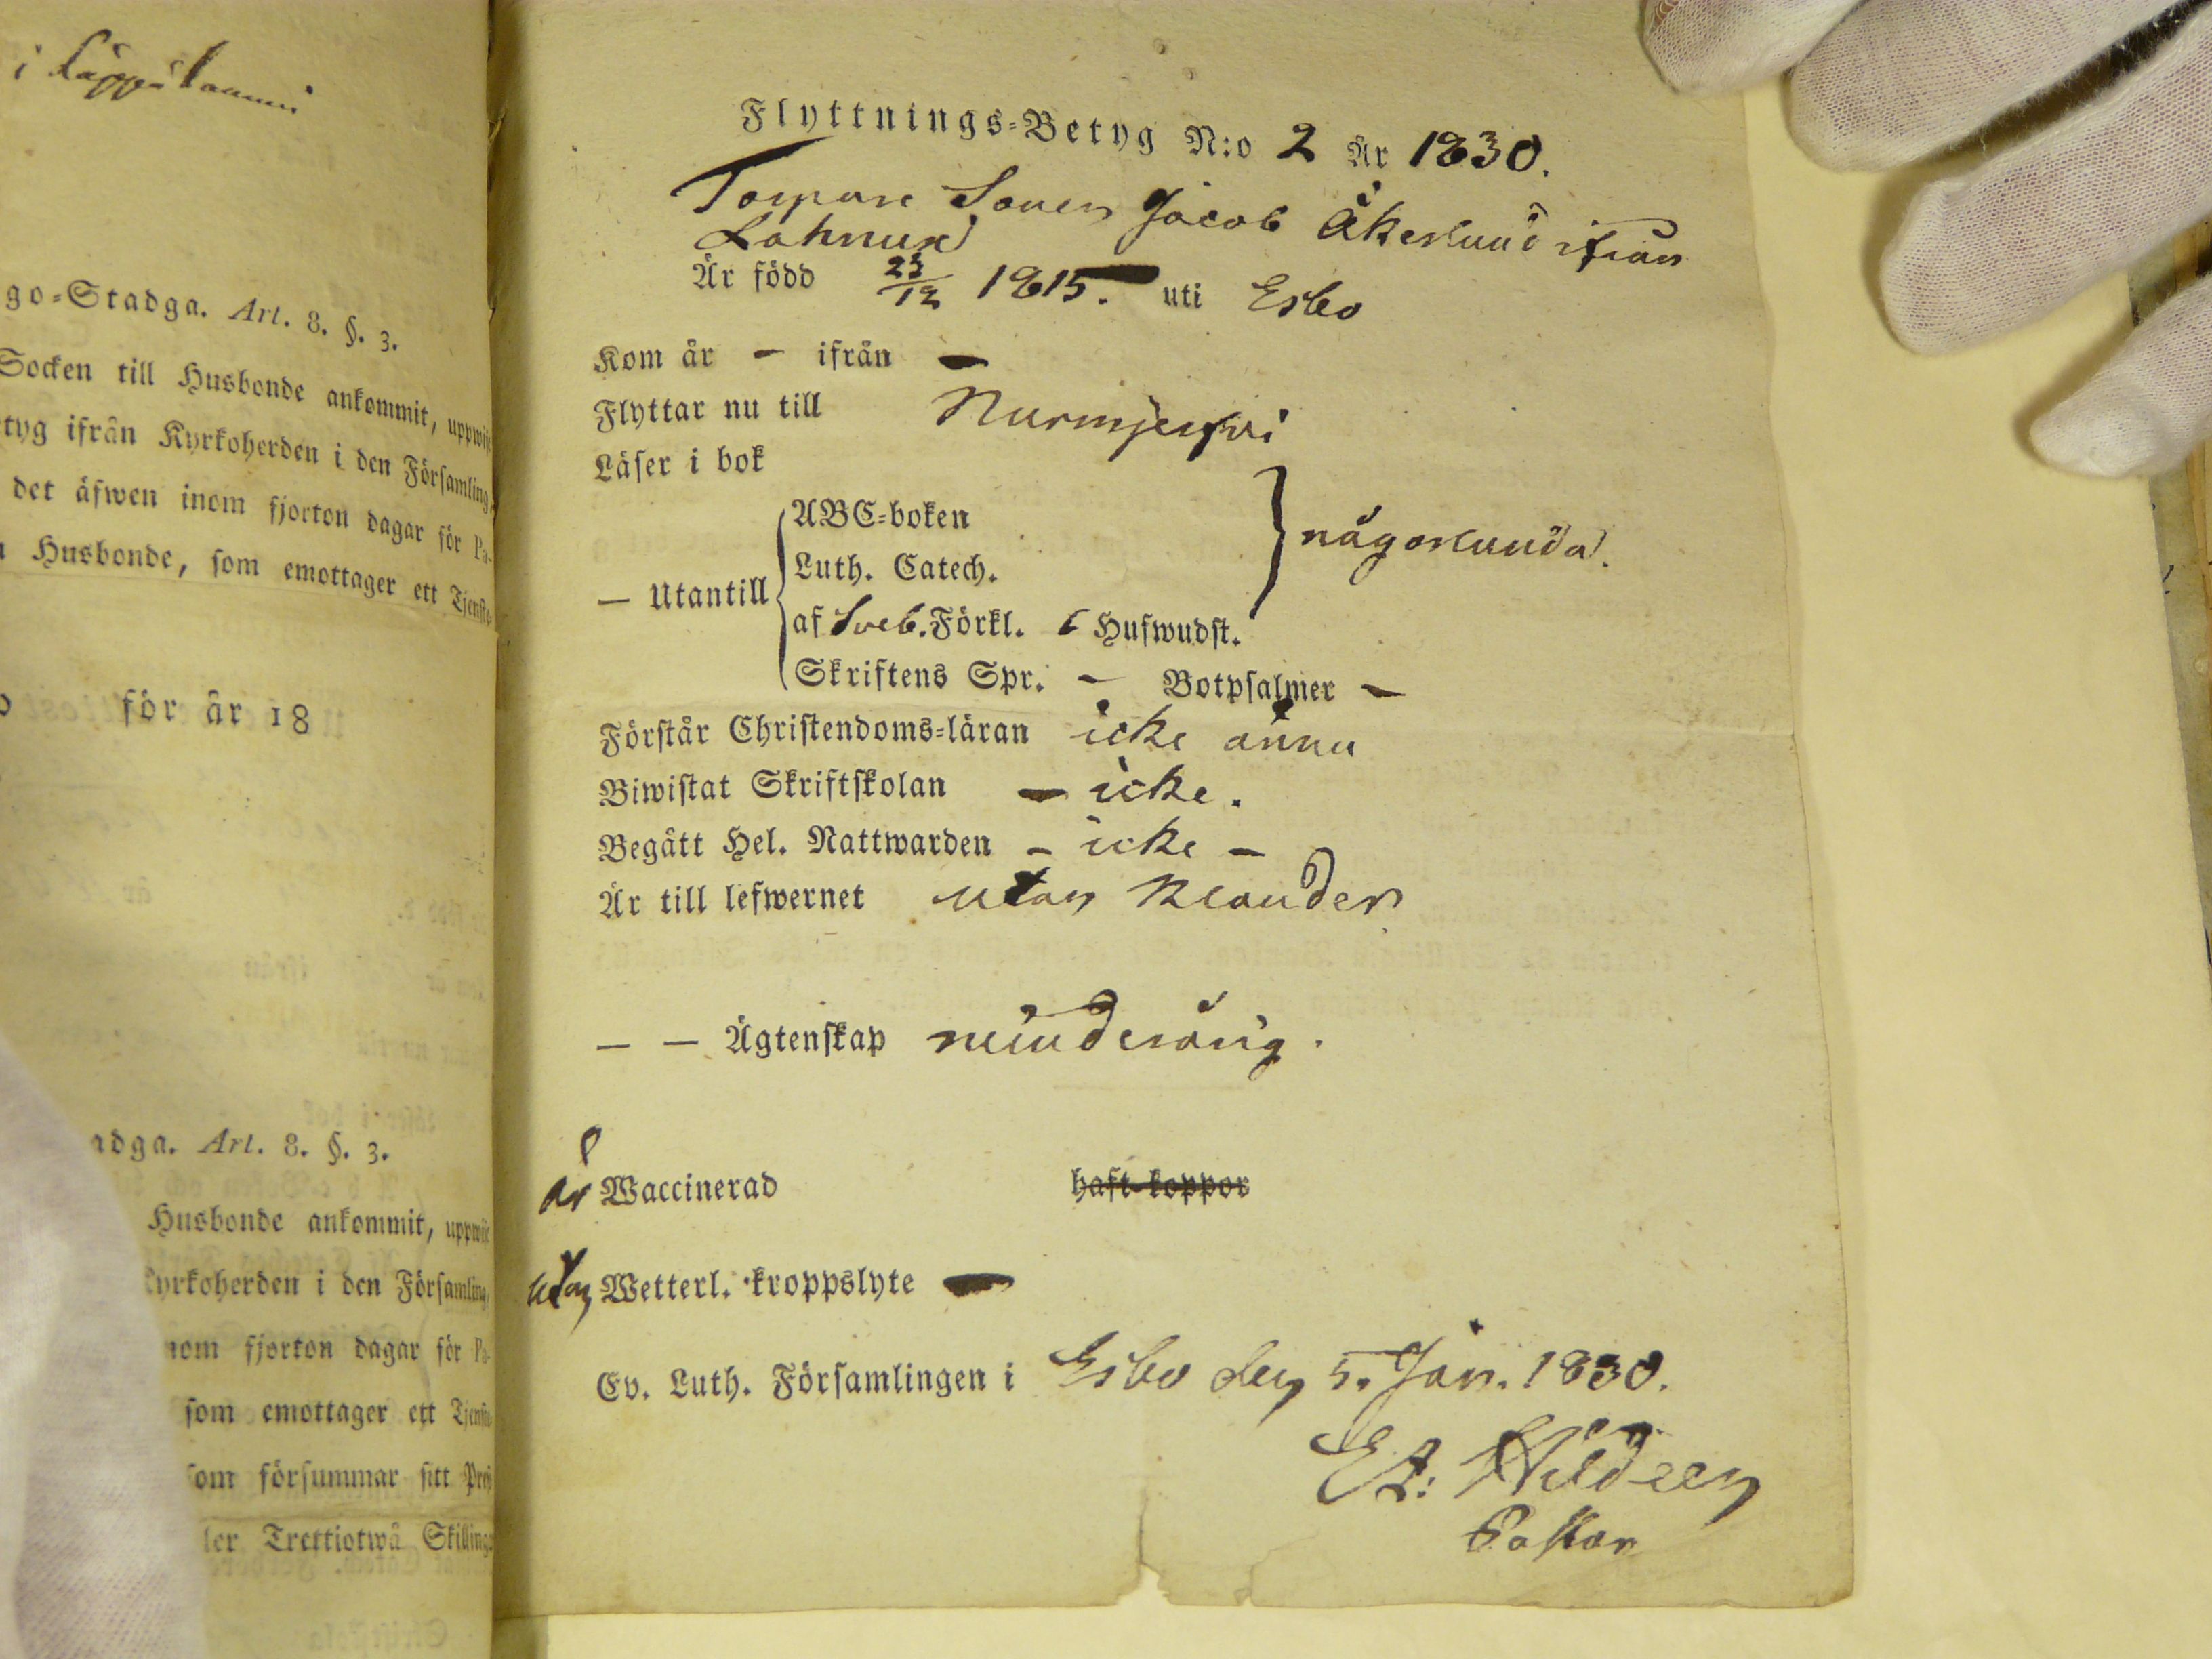 i Läppälammi
go-Stadga. Art. 8. §. 3.
Socken till Husbonde ankommit, uppwis
tyg ifrån Kyrkoherden i den Församling,
det äfwen inom fjorton dagar för Pa-
Husbonde, som emottager ett Tjenste-
för år 18
adga. Art. 8. §. 3.
Husbonde ankommit, uppwis
kyrkoherden i den Församling,
nom fjorton dagar för Pa-
som emottager ett Tjenste-
som försummar sitt Pre
ler Trettiotwå Skillings
Flyttnings-Betyg N:o 2 År 1830.
Torpare Sonen Jacob Åkerlund ifrån
Lahnus
Är född 23/12 1815. uti Esbo
Kom år – ifrån –
Flyttar nu till Nurmjerfvi
Läser i bok
— Utantill
ABC-boken
Luth. Catech.
någorlunda.
af Sveb. Förkl. 6 Hufwudst.
Skriftens Spr. – Botpsalmer –
Förstår Christendoms-läran icke ännu
Biwistat Skriftskolan – icke.
Begått Hel. Nattwarden – icke –
Är till lefwernet utan klander
— — Ägtenskap minderårig.
är Waccinerad haft koppor
utan Wetterl. kroppslyte –
Ev. Luth. Församlingen i Esbo den 5. Jan. 1830.
Hildeen
Pastor